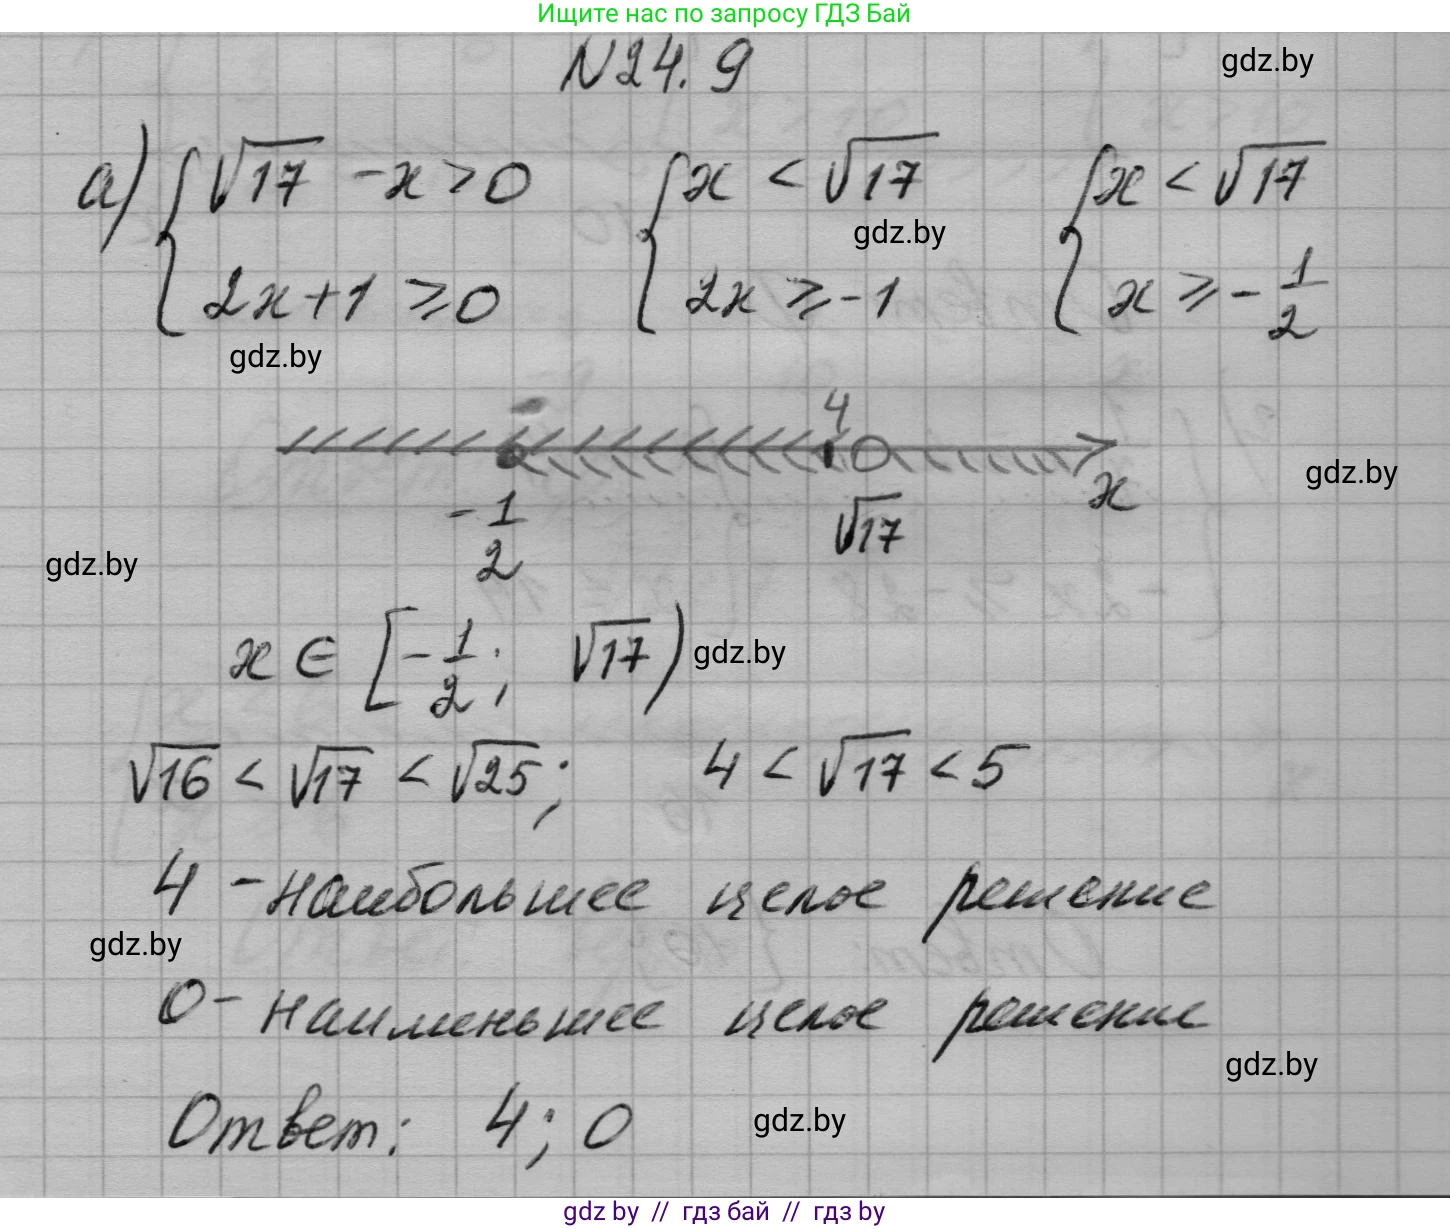 Ищите нас по запросу ГДЗ Бай
N24.9
gdz.by
а) { √17 - x > 0 { x < √17 { x < √17
gdz.by
2x+1 ⩾ 0 2x ⩾ -1 x ⩾ - 1/2
gdz.by
4
x
gdz.by
- 1/2 √17
gdz.by
x ∈ [- 1/2; √17)
gdz.by
√16 < √17 < √25; 4 < √17 < 5
4 - наибольшее целое решение
gdz.by
0 - наименьшее целое решение
gdz.by
Ответ: 4; 0
gdz.by
gdz by // гдз бай // гдз by